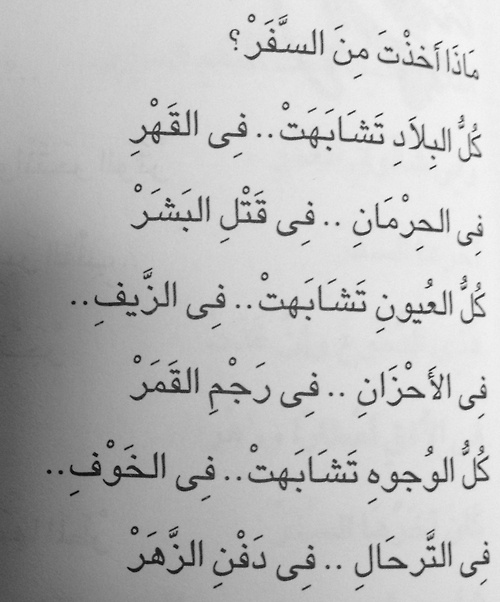 مَاذَا أَخذْتَ مِنَ السَّفَرْ؟
كُلُّ البِلاَدِ تَشَابَهَتْ.. فِى القَهْرِ
فِى الحِرْمَانِ .. فِى قَتْلِ البَشَرْ
كُلُّ العُيونِ تَشَابَهتْ.. فِى الزَّيفِ..
فِى الأَحْزَانِ .. فِى رَجْمِ القَمَرْ
كُلُّ الوُجوهِ تَشَابَهتْ.. فِى الخَوْفِ..
فِى التَّرحَالِ .. فِى دَفْنِ الزَّهَرْ